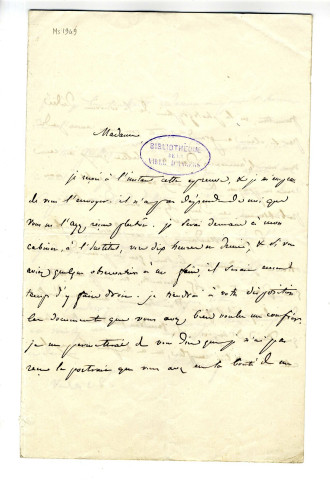 Ms 1909
Madame
BIBLIOTHÈQUE
DE LA
VILLE
je reçois à l'instant cette épreuve, & je m'empresse
de vous l'envoyer. il n'a pas dépendu de moi que
vous ne l'ayez reçue plutôt. je serai demain à mon
cabinet, à l'Institut, vers dix heures et demie, & si vous
aviez quelque observation à me faire, il serait encore
temps d'y faire droit. je rendrai à votre disposition
les documents que vous avez bien voulu me confier.
je me permettrai de vous dire que je n'ai pas
reçu le que vous avez eu la bonté de me